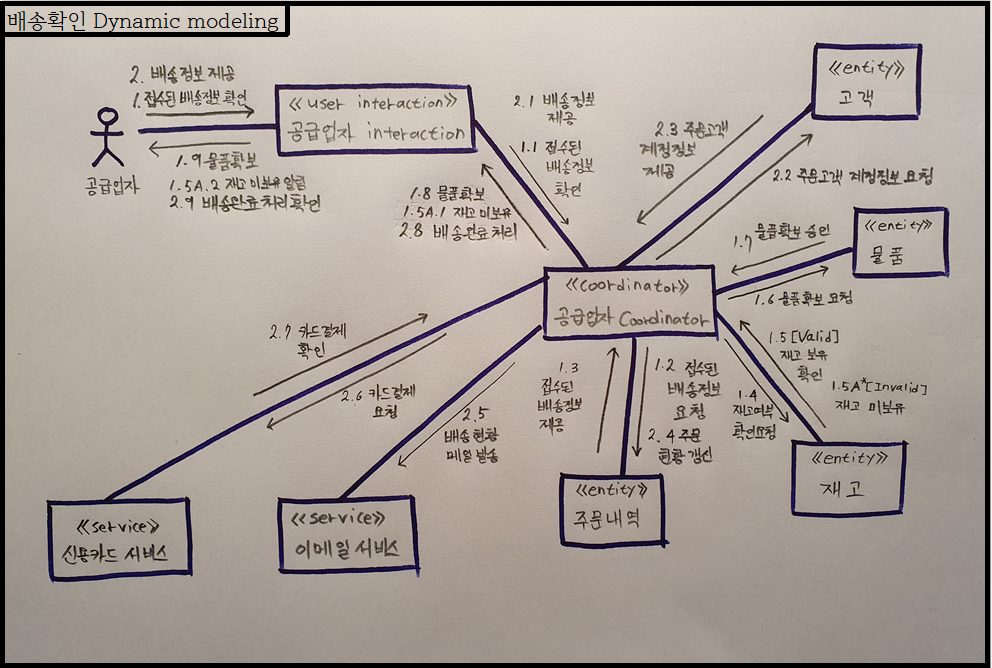 배송확인 Dynamic modeling
2. 배송정보 제공
1. 접수된 배송정보 확인
공급업자
1.9 물품확보
1.5A.2 재고 미보유 알림
2.9 배송완료 처리 확인
《user interaction》
공급업자 interaction
2.1 배송정보
제공
1.1 접수된
배송정보
확인
1.8 물품확보
1.5A.1 재고 미보유
2.8 배송완료 처리
《entity》
고객
2.3 주문고객
계정정보
제공
2.2 주문고객 계정정보 요청
《entity》
물품
1.7 물품확보 승인
1.6 물품확보 요청
《coordinator》
공급업자 Coordinator
2.7 카드결제
확인
2.6 카드결제
요청
2.5
배송현황
메일 발송
1.3
접수된
배송정보
제공
1.2 접수된
배송정보
요청
2.4 주문
현황 갱신
1.4
재고여부
확인요청
1.5 [Valid]
재고 보유
확인
1.5A*[Invalid]
재고 미보유
《service》
신용카드 서비스
《service》
이메일 서비스
《entity》
주문내역
《entity》
재고